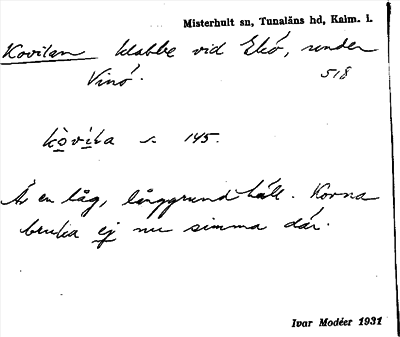 Misterhult sn, Tunaläns hd, Kalm. l.
Kovilan klabbe vid Ekö, under
Vinö. 518
kò̱ví̱la s. 145.
Är en låg, långgrund häll. Korna
bruka ej nu simma där.
Ivar Modéer 1931